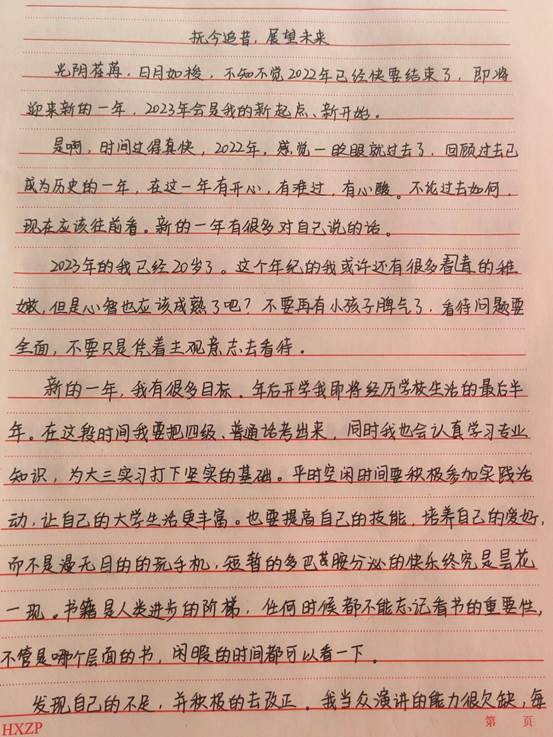 抚今追昔,展望未来
光阴荏苒,日月如梭,不知不觉2022年已经快要结束了,即将
迎来新的一年,2023年会是我的新起点、新开始。
是啊,时间过得真快,2022年,感觉一眨眼就过去了,回顾过去已
成为历史的一年,在这一年有开心,有难过,有心酸。不论过去如何,
现在应该往前看。新的一年有很多对自己说的话。
2023年的我已经20岁了。这个年纪的我或许还有很多青春的稚
嫩,但是心智也应该成熟了吧?不要再有小孩子脾气了,看待问题要
全面,不要只是凭着主观意志去看待。
新的一年,我有很多目标,年后开学我即将经历学校生活的最后半
年。在这段时间我要把四级、普通话考出来,同时我也会认真学习专业
知识,为大三实习打下坚实的基础。平时空闲时间要积极参加实践活
动,让自己的大学生活更丰富。也要提高自己的技能,培养自己的爱好,
而不是漫无目的的玩手机,短暂的多巴胺分泌的快乐终究是昙花
一现。书籍是人类进步的阶梯,任何时候都不能忘记看书的重要性,
不管是哪个层面的书,闲暇的时间都可以看一下。
发现自己的不足,并积极的去改正。我当众演讲的能力很欠缺,每
HXZP
第 页